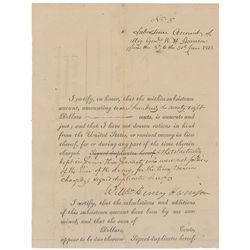 No. 5
Subsistence Account, of
Maj. Genl. W. H. Harrison
from the to the 30th June 1813
I certify, in honor, that the within subsistence
account, amounting to one hundred twenty eight
Dollars cents, is correct and
just; and that I have not drawn rations in kind
from the United States, or received money in lieu there-
of, for or during any part of the time therein
charged. Signed duplicates hereof.
kept on
of the time of the
charged, signed duplicates
Willm Henry Harrison
I certify, that the calculations and additions
of this subsistence account have been by me exa-
mined, and that the sum of
Dollars, Cents,
appear to be due thereon. Signed duplicates hereof.